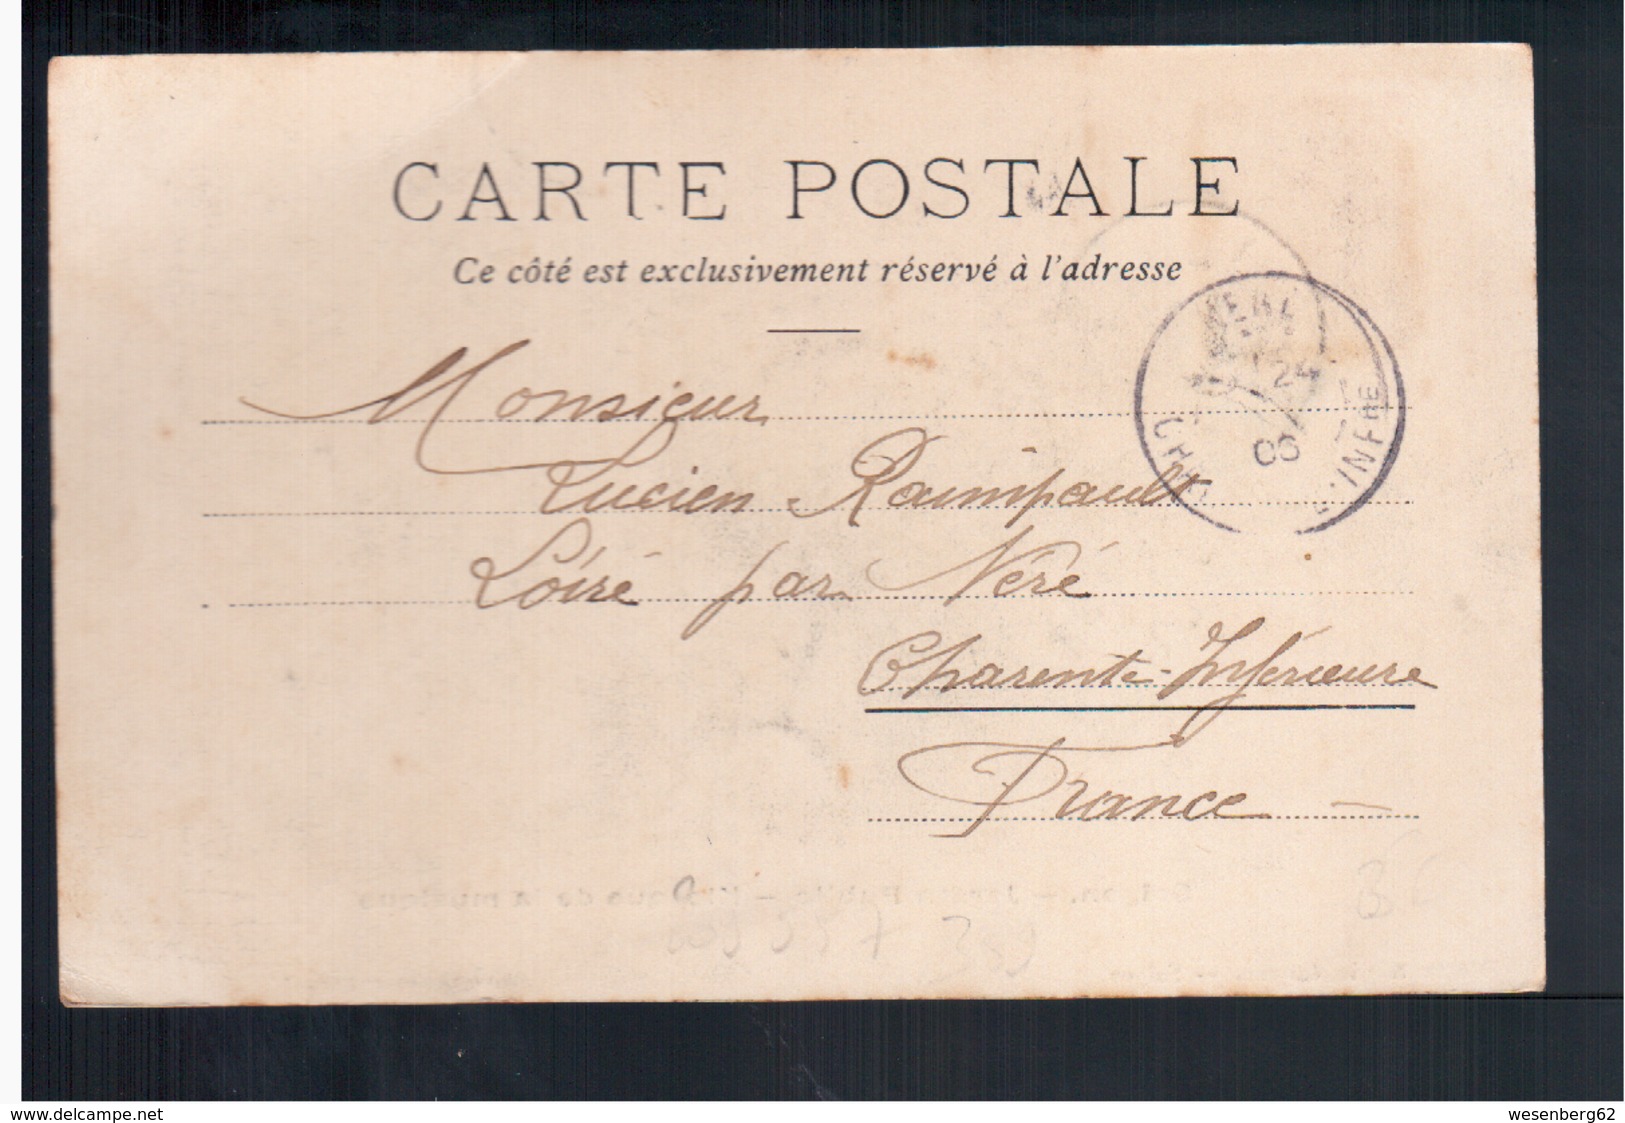 CARTE POSTALE
Ce côté est exclusivement réservé à l'adresse
Monsieur
Lucien Raimpault
Loiré par Néré
Charente-Inférieure
France
24
06
INFRE
www.delcampe.net
wesenberg62